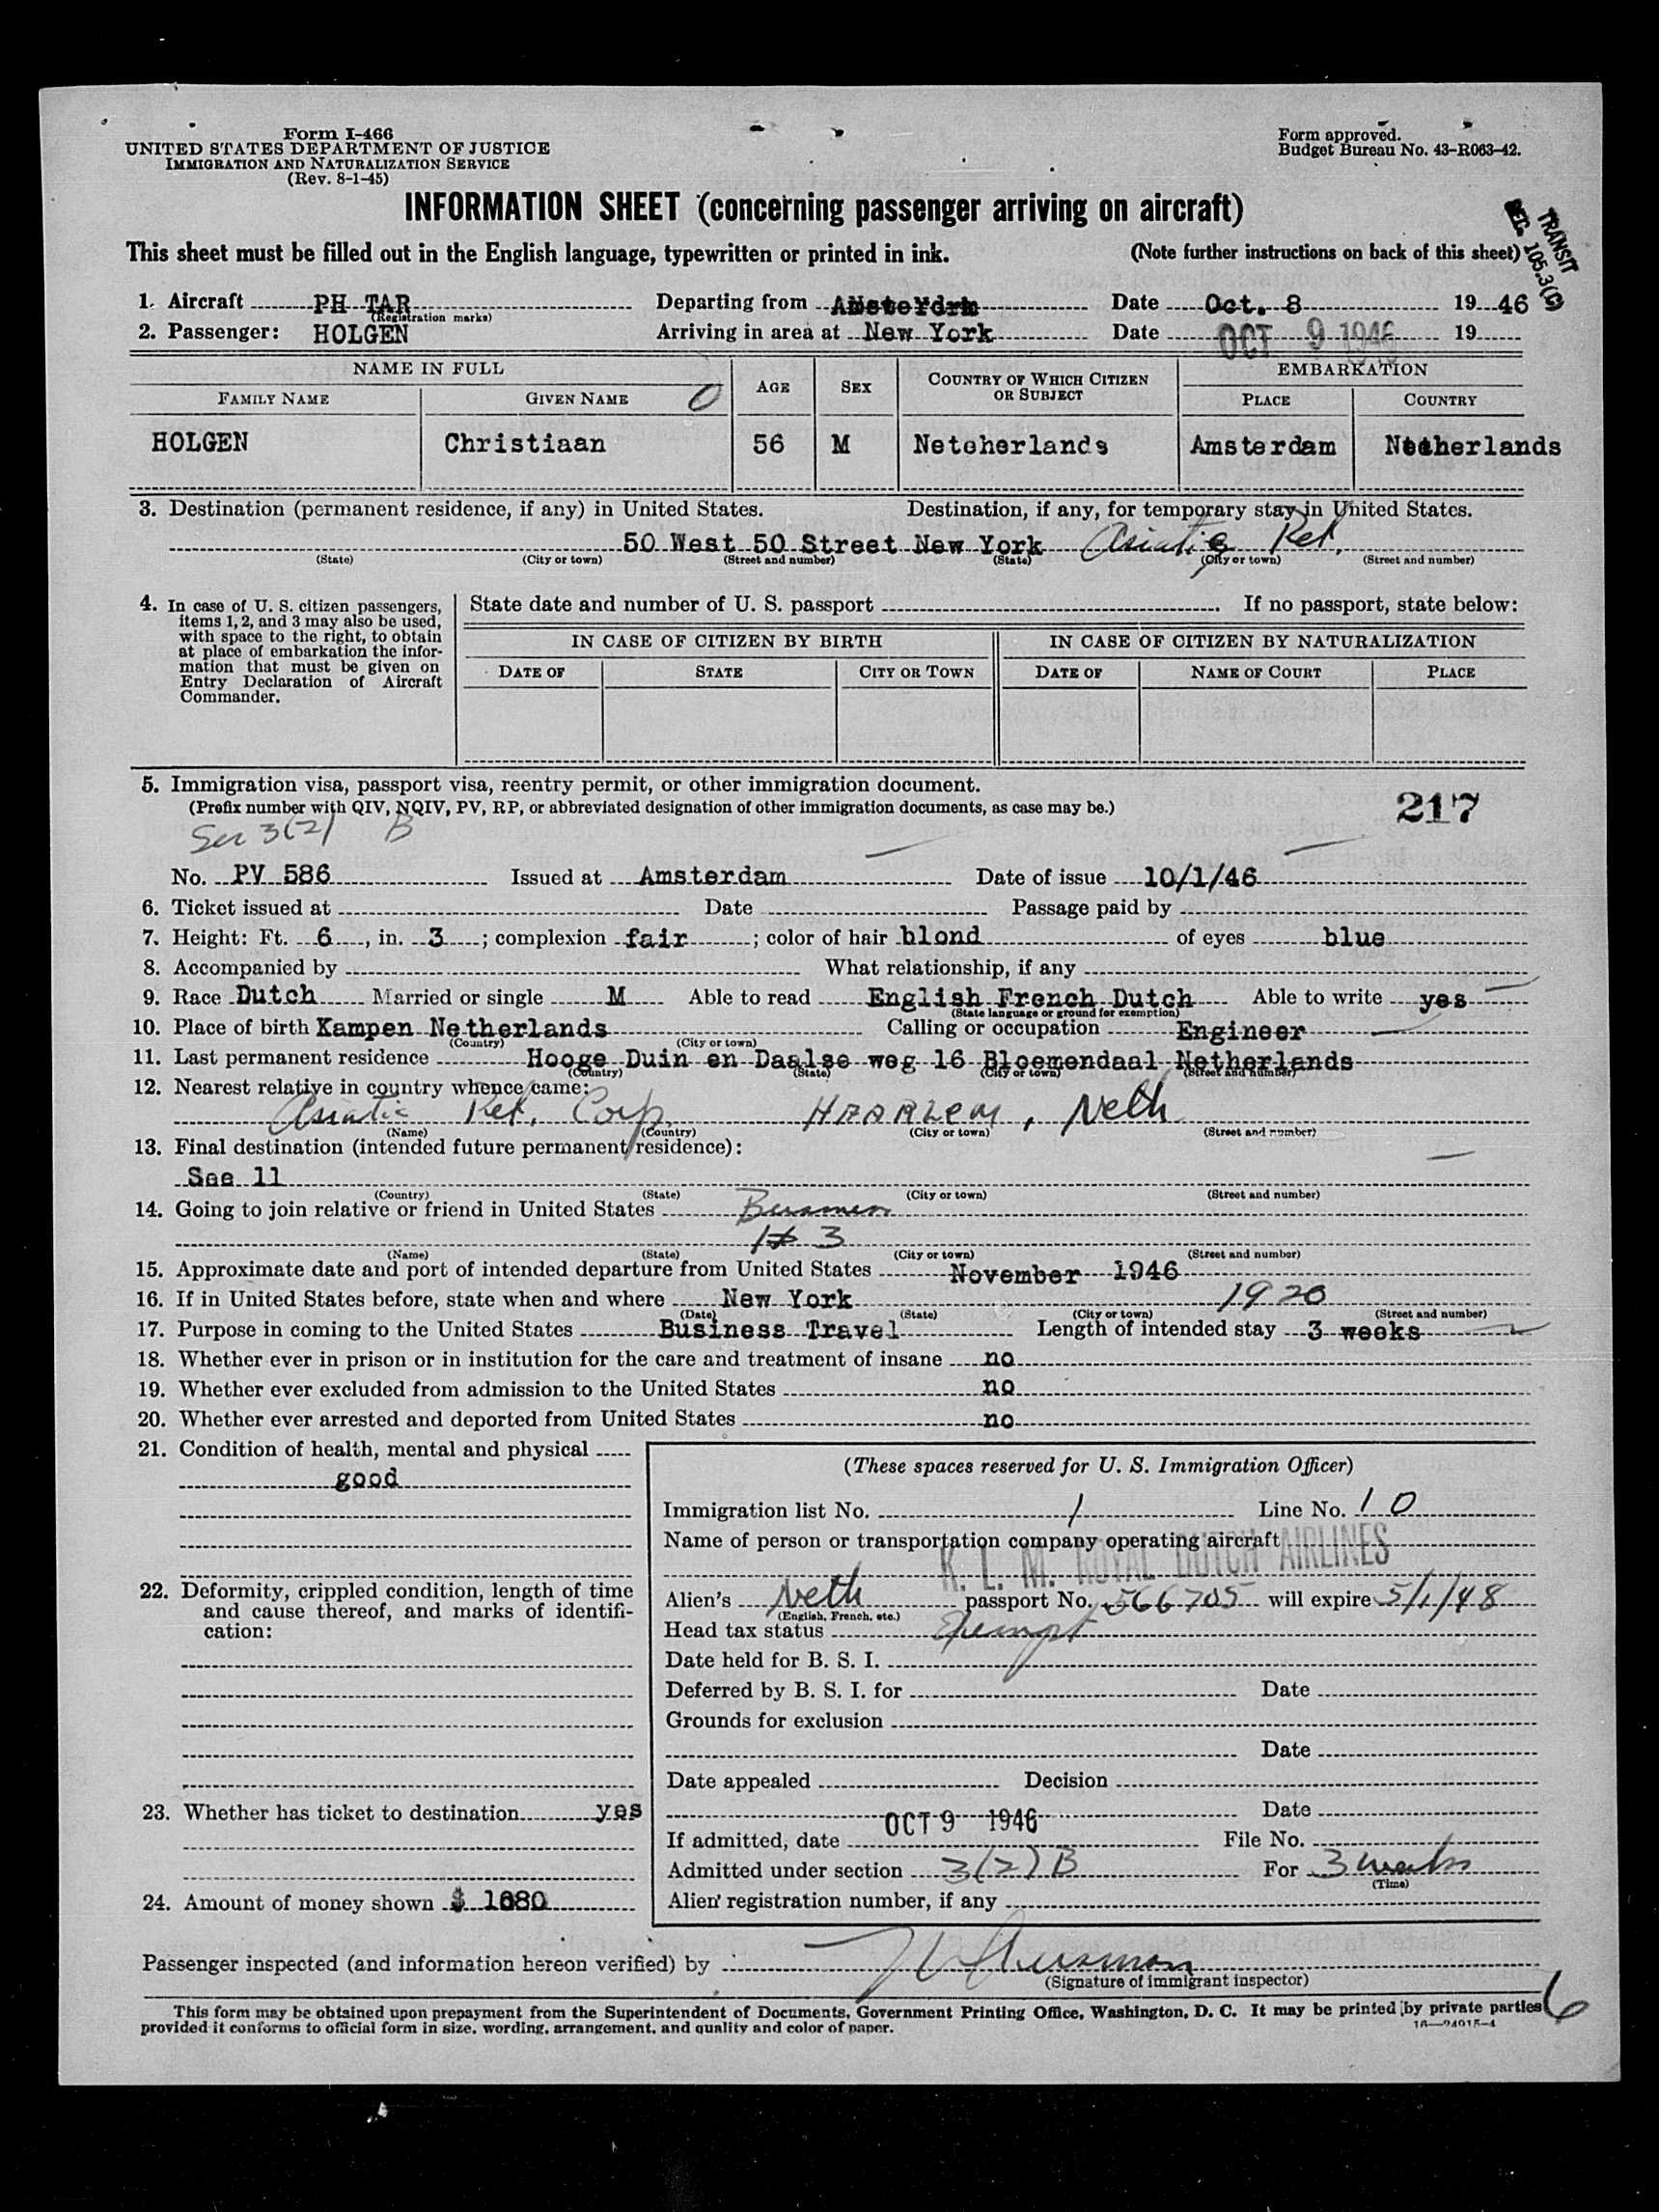 Form I-466
UNITED STATES DEPARTMENT OF JUSTICE
IMMIGRATION AND NATURALIZATION SERVICE
(Rev. 8-1-45)
Form approved.
Budget Bureau No. 43-R063-42.
INFORMATION SHEET (concerning passenger arriving on aircraft)
TRANSIT
SEC. 105.3(C)
This sheet must be filled out in the English language, typewritten or printed in ink. (Note further instructions on back of this sheet)
1. Aircraft PH TAR Departing from Date Oct. 8 1946
(Registration marks)
2. Passenger: HOLGEN Arriving in area at New York Date OCT 9 1946 19
NAME IN FULL AGE SEX COUNTRY OF WHICH CITIZEN OR SUBJECT EMBARKATION
FAMILY NAME GIVEN NAME PLACE COUNTRY
HOLGEN Christiaan 56 M Neteherlands Amsterdam Netherlands
3. Destination (permanent residence, if any) in United States. Destination, if any, for temporary stay in United States.
50 West 50 Street New York Asiatic Pet.
(State) (City or town) (Street and number) (State) (City or town) (Street and number)
4. In case of U. S. citizen passengers, items 1, 2, and 3 may also be used, with space to the right, to obtain at place of embarkation the information that must be given on Entry Declaration of Aircraft Commander.
State date and number of U. S. passport . If no passport, state below:
IN CASE OF CITIZEN BY BIRTH IN CASE OF CITIZEN BY NATURALIZATION
DATE OF STATE CITY OR TOWN DATE OF NAME OF COURT PLACE
5. Immigration visa, passport visa, reentry permit, or other immigration document.
(Prefix number with QIV, NQIV, PV, RP, or abbreviated designation of other immigration documents, as case may be.) 217
Sec 3(2) B
No. PV 586 Issued at Amsterdam Date of issue 10/1/46
6. Ticket issued at Date Passage paid by
7. Height: Ft. 6, in. 3; complexion fair; color of hair blond of eyes blue
8. Accompanied by What relationship, if any
9. Race Dutch Married or single M Able to read English French Dutch Able to write yes
(State language or ground for exemption)
10. Place of birth Kampen Netherlands Calling or occupation Engineer
(Country) (City or town)
11. Last permanent residence Hooge Duin en Daalse weg 16 Bloemendaal Netherlands
(Country) (State) (City or town) (Street and number)
12. Nearest relative in country whence came:
Asiatic Pet. Corp. HAARLEM, Neth
(Name) (Country) (City or town) (Street and number)
13. Final destination (intended future permanent residence):
See 11
(Country) (State) (City or town) (Street and number)
14. Going to join relative or friend in United States
# 3
(Name) (State) (City or town) (Street and number)
15. Approximate date and port of intended departure from United States November 1946
16. If in United States before, state when and where New York 1920
(Date) (State) (City or town) (Street and number)
17. Purpose in coming to the United States Business Travel Length of intended stay 3 weeks
18. Whether ever in prison or in institution for the care and treatment of insane no
19. Whether ever excluded from admission to the United States no
20. Whether ever arrested and deported from United States no
21. Condition of health, mental and physical
good
22. Deformity, crippled condition, length of time and cause thereof, and marks of identification:
23. Whether has ticket to destination yes
24. Amount of money shown $ 1080
(These spaces reserved for U. S. Immigration Officer)
Immigration list No. 1 Line No. 10
Name of person or transportation company operating aircraft
K. L. M. ROYAL DUTCH AIRLINES
Alien's Neth passport No. 566705 will expire 5/1/48
(English, French, etc.)
Head tax status Exempt
Date held for B. S. I.
Deferred by B. S. I. for Date
Grounds for exclusion
Date
Date appealed Decision
Date
If admitted, date OCT 9 1946 File No.
Admitted under section 3(2) B For 3 weeks
(Time)
Alien registration number, if any
Passenger inspected (and information hereon verified) by
(Signature of immigrant inspector)
This form may be obtained upon prepayment from the Superintendent of Documents, Government Printing Office, Washington, D. C. It may be printed by private parties
provided it conforms to official form in size, wording, arrangement, and quality and color of paper.
6